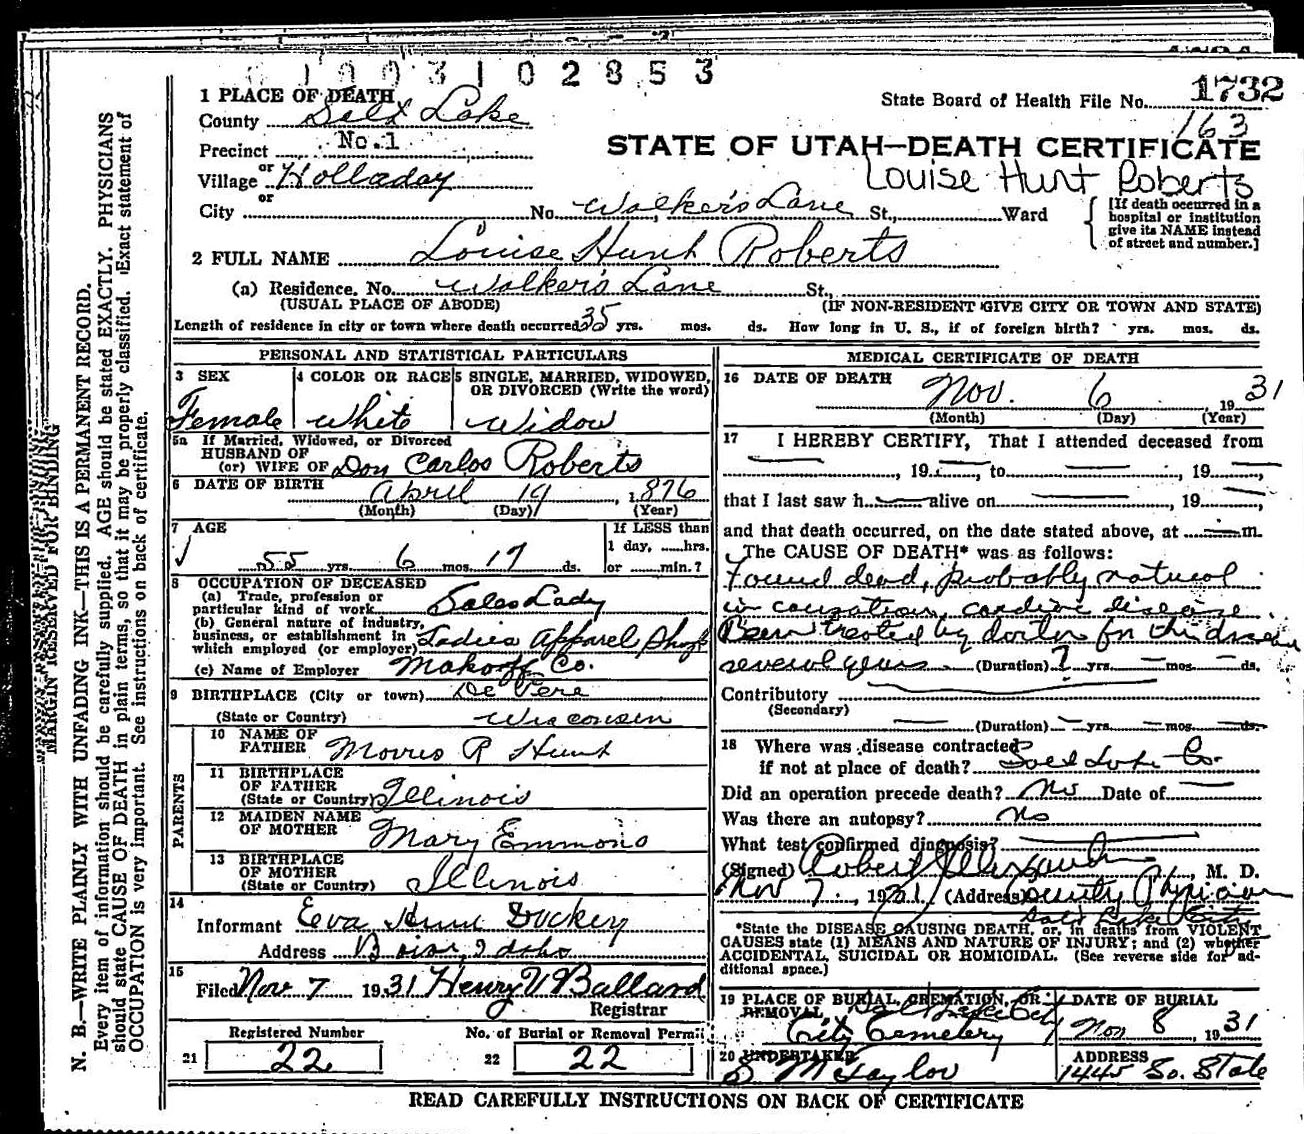 01003102853
1 PLACE OF DEATH
County Salt Lake
Precinct No. 1
or
Village Holladay
or
City No. Walker's Lane St., Ward
State Board of Health File No. 1732
163
STATE OF UTAH—DEATH CERTIFICATE
Louise Hunt Roberts
[If death occurred in a
hospital or institution
give its NAME instead
of street and number.]
2 FULL NAME Louise Hunt Roberts
(a) Residence, No. Walker's Lane St.,
(USUAL PLACE OF ABODE) (IF NON-RESIDENT GIVE CITY OR TOWN AND STATE)
Length of residence in city or town where death occurred 35 yrs. mos. ds. How long in U. S., if of foreign birth? yrs. mos. ds.
PERSONAL AND STATISTICAL PARTICULARS
3 SEX
Female
4 COLOR OR RACE
White
5 SINGLE, MARRIED, WIDOWED,
OR DIVORCED (Write the word)
Widow
5a If Married, Widowed, or Divorced
HUSBAND OF
(or) WIFE OF Don Carlos Roberts
6 DATE OF BIRTH April 19, 1876
(Month) (Day) (Year)
7 AGE
55 yrs. 6 mos. 17 ds.
If LESS than
1 day, hrs.
or min.?
8 OCCUPATION OF DECEASED
(a) Trade, profession or
particular kind of work Sales Lady
(b) General nature of industry,
business, or establishment in
which employed (or employer) Ladies Apparel Shop
(c) Name of Employer Makoff Co.
9 BIRTHPLACE (City or town) De Pere
(State or Country) Wisconsin
PARENTS
10 NAME OF
FATHER Morris R Hunt
11 BIRTHPLACE
OF FATHER
(State or Country) Illinois
12 MAIDEN NAME
OF MOTHER Mary Emmons
13 BIRTHPLACE
OF MOTHER
(State or Country) Illinois
14
Informant Eva Hunt Dockery
Address Boise, Idaho
15
Filed Nov 7 1931 Henry V Ballard
Registrar
Registered Number
21 22
No. of Burial or Removal Permit
22 22
MEDICAL CERTIFICATE OF DEATH
16 DATE OF DEATH
Nov. 6 1931
(Month) (Day) (Year)
17 I HEREBY CERTIFY, That I attended deceased from
, 19 to , 19
that I last saw h alive on , 19
and that death occurred, on the date stated above, at m.
The CAUSE OF DEATH* was as follows:
Found dead, probably natural
in causation, cardiac disease.
Been treated by doctor for this disease
several years (Duration) ? yrs. mos. ds.
Contributory
(Secondary)
(Duration) yrs. mos. ds.
18 Where was disease contracted
if not at place of death? Salt Lake Co.
Did an operation precede death? No Date of
Was there an autopsy? No
What test confirmed diagnosis?
(Signed) Robert , M. D.
Nov 7, 1931 (Address) County Physician
Salt Lake City
*State the DISEASE CAUSING DEATH, or, in deaths from VIOLENT
CAUSES state (1) MEANS AND NATURE OF INJURY; and (2) whether
ACCIDENTAL, SUICIDAL OR HOMICIDAL. (See reverse side for ad-
ditional space.)
19 PLACE OF BURIAL, CREMATION, OR
REMOVAL Salt Lake City
City Cemetery
DATE OF BURIAL
Nov 8, 1931
20 UNDERTAKER
S M Taylor
ADDRESS
1445 So. State
READ CAREFULLY INSTRUCTIONS ON BACK OF CERTIFICATE
MARGIN RESERVED FOR BINDING
N. B.—WRITE PLAINLY WITH UNFADING INK—THIS IS A PERMANENT RECORD.
Every item of information should be carefully supplied. AGE should be stated EXACTLY. PHYSICIANS
should state CAUSE OF DEATH in plain terms, so that it may be properly classified. Exact statement of
OCCUPATION is very important. See instructions on back of certificate.